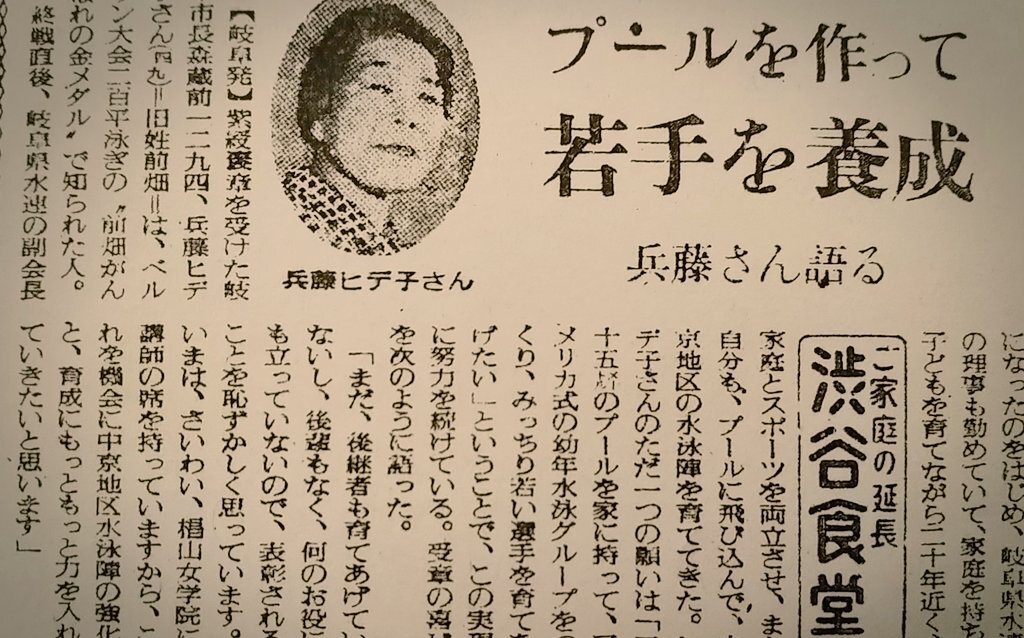 プールを作って
若手を養成
兵藤さん語る
兵藤ヒデ子さん
【岐阜発】紫綬褒章を受けた岐
市長森蔵前一二九四、兵藤ヒデ
さん(四九)=旧姓前畑=は、ベル
ン大会二百平泳ぎの〝前畑がん
れの金メダル〟で知られた人。
終戦直後、岐阜県水連の副会長
になったのをはじめ、岐阜県水
の理事も勤めていて、家庭を持ち
子どもを育てながら二十年近く
ご家庭の延長
渋谷食堂
家庭とスポーツを両立させ、ま
自分も、プールに飛び込んで、
京地区の水泳陣を育ててきた。
デ子さんのただ一つの願いは「
十五㍍のプールを家に持って、
メリカ式の幼年水泳グループを
くり、みっちり若い選手を育て
げたい」ということで、この実現
に努力を続けている。受章の喜び
を次のように語った。
「まだ、後継者も育てあげてい
ないし、後輩もなく、何のお役に
も立っていないので、表彰される
ことを恥ずかしく思っています。
いまは、さいわい、椙山女学院に
講師の席を持っていますから、こ
れを機会に中京地区水泳陣の強化
と、育成にもっともっと力を入れ
ていきたいと思います」